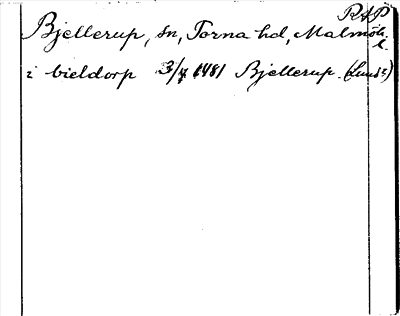 RAP
Bjellerup, sn, Torna hd, Malmöh. l.
i bieldorp 3/4 1481 Bjellerup. (Lunds)